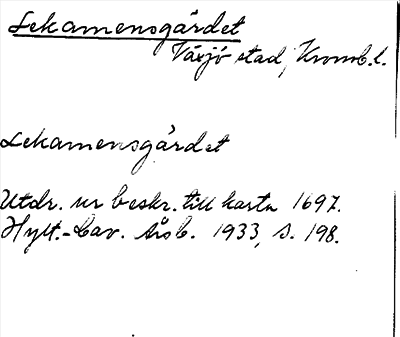 Lekamensgärdet
Växjö stad, Kronob. l.
Lekamensgärdet
Utdr. ur beskr. till karta 1697.
Hylt.-Cav. Årsb. 1933, s. 198.